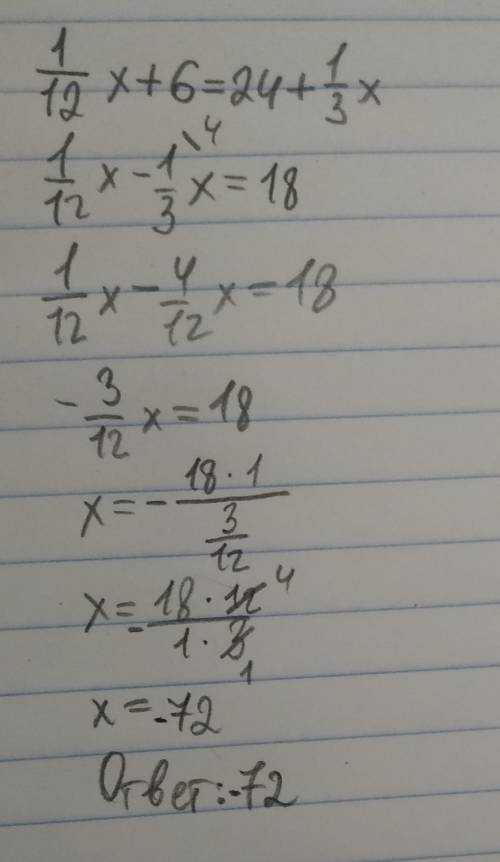 1/12 x + 6 = 24 + 1/3 x
1/12 x - 1/3 \4 x = 18
1/12 x - 4/12 x = 18
- 3/12 x = 18
x = - 18 · 1 / 3/12
x = - 18 · 12 4 / 1 · 3 1
x = -72
Ответ: -72